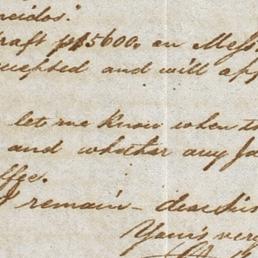 draft p $5600. on Mess
accepted and will app
let me know when to
and whether any Ja
ffee.
I remain - dear Sir
Yours very